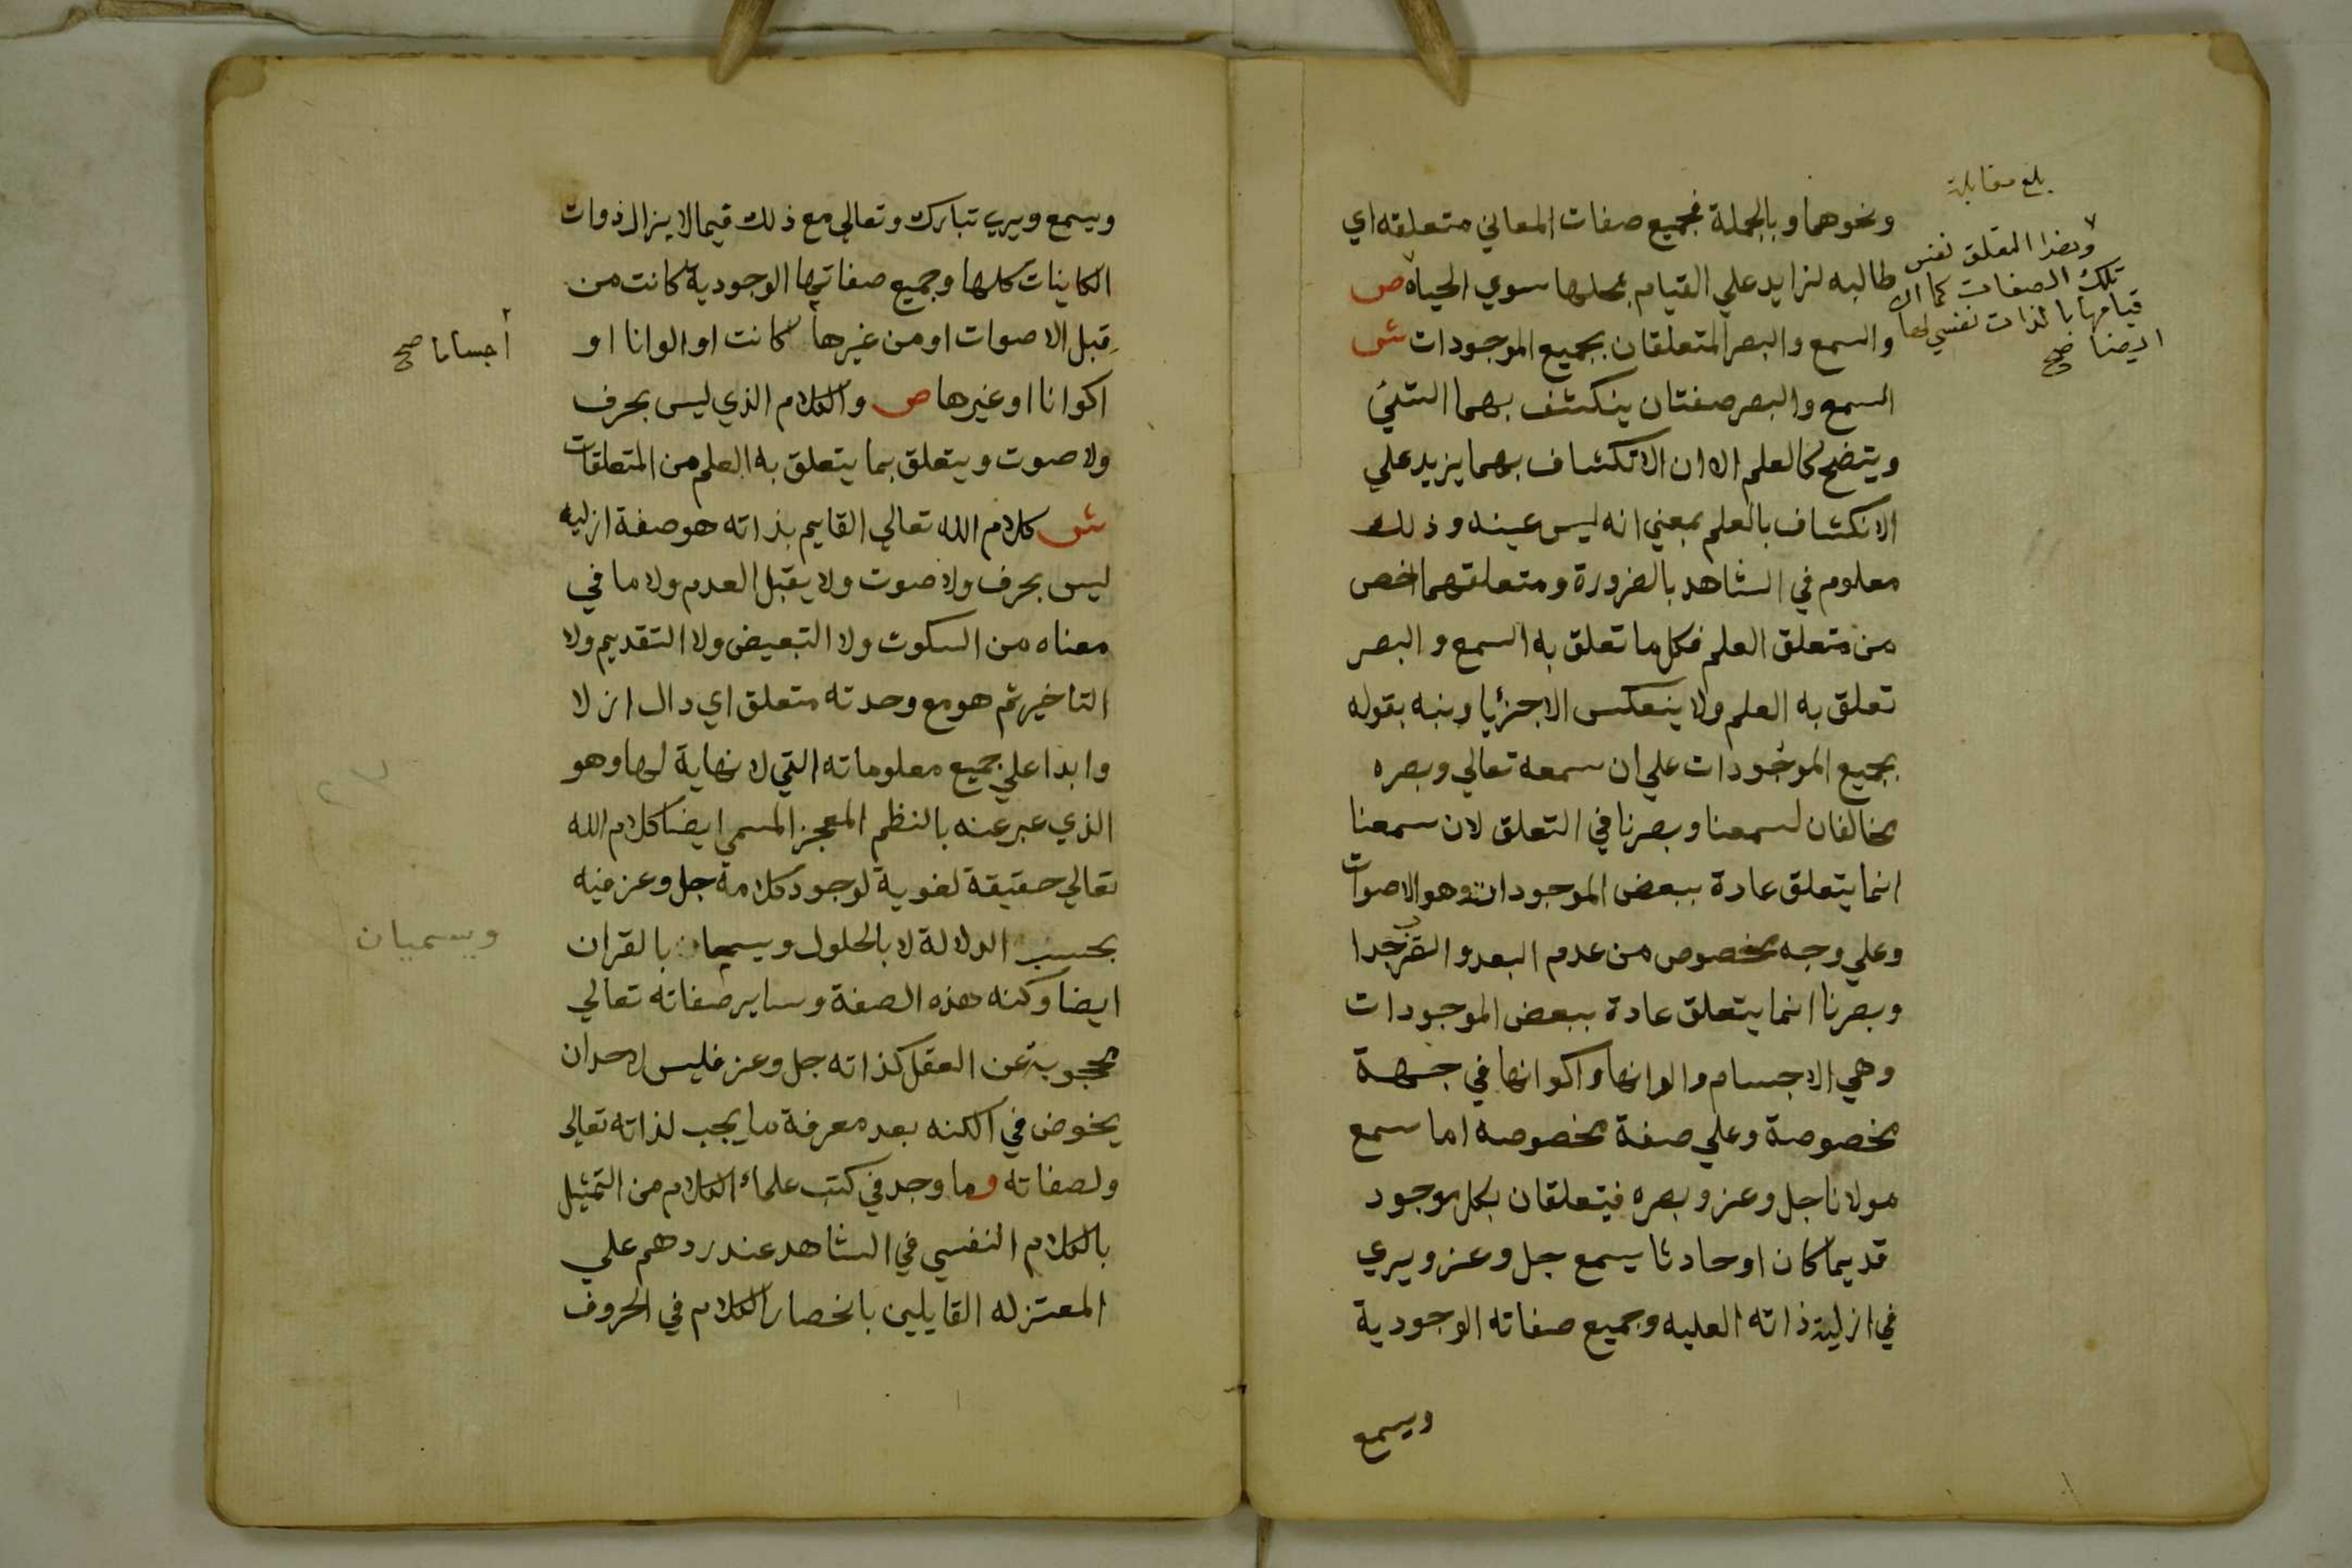 بلغ مقابلة
وهذا التعلق نفسي
تلك الصفات كما ان
قيامها بالذات نفسي لها
ايضا صح
ونحوهما وبالجملة فجميع صفات المعاني متعلقه اي
طالبه لزايد علي القيام بمحلها سوي الحياه ص
والسمع والبصر المتعلقان بجميع الموجودات ش
السمع والبصر صفتان ينكشف بهما الشئ
ويتضح كالعلم الا ان الانكشاف بهما يزيد علي
الانكشاف بالعلم بمعني انه ليس عينه وذلك
معلوم في الشاهد بالضرورة ومتعلقهما اخص
من متعلق العلم فكل ما تعلق به السمع والبصر
تعلق به العلم ولا ينعكس الا جزئيا ونبه بقوله
بجميع الموجودات علي ان سمعه تعالي وبصره
مخالفان لسمعنا وبصرنا في التعلق لان سمعنا
انما يتعلق عادة ببعض الموجودات وهو الاصوات
وعلي وجه مخصوص من عدم البعد والقرب جدا
وبصرنا انما يتعلق عادة ببعض الموجودات
وهي الاجسام والوانها واكوانها في جهة
مخصوصة وعلي صفة مخصوصه اما سمع
مولانا جل وعز وبصره فيتعلقان بكل موجود
قديما كان او حادثا يسمع جل وعز ويري
في ازليه ذاته العليه وجميع صفاته الوجودية
ويسمع
ويسمع ويري تبارك وتعالي مع ذلك فيما لا يزال ذوات
الكاينات كلها وجميع صفاتها الوجودية كانت من
قبل الاصوات او من غيرها كانت او الوانا او
أجساما صح
اكوانا او غيرها ص والكلام الذي ليس بحرف
ولا صوت ويتعلق بما يتعلق به العلم من المتعلقات
ش كلام الله تعالي القايم بذاته هو صفة ازليه
ليس بحرف ولا صوت ولا يقبل العدم ولا ما في
معناه من السكوت ولا التبعيض ولا التقديم ولا
التاخير ثم هو مع وحدته متعلق اي دال ازلا
وابدا علي جميع معلوماته التي لا نهاية لها وهو
الذي عبر عنه بالنظم المعجز المسمي ايضا كلام الله
تعالي حقيقة لغوية لوجود كلامه جل وعز فيه
بحسب الدلالة لا بالحلول ويسميان بالقران
ويسميان
ايضا وكنه هذه الصفة وساير صفاته تعالي
محجوبة عن العقل كذاته جل وعز فليس لاحد ان
يخوض في الكنه بعد معرفة ما يجب لذاته تعالي
ولصفاته وما وجد في كتب علماء الكلام من التمثيل
بالكلام النفسي في الشاهد عند ردهم علي
المعتزله القايلين بانحصار الكلام في الحروف